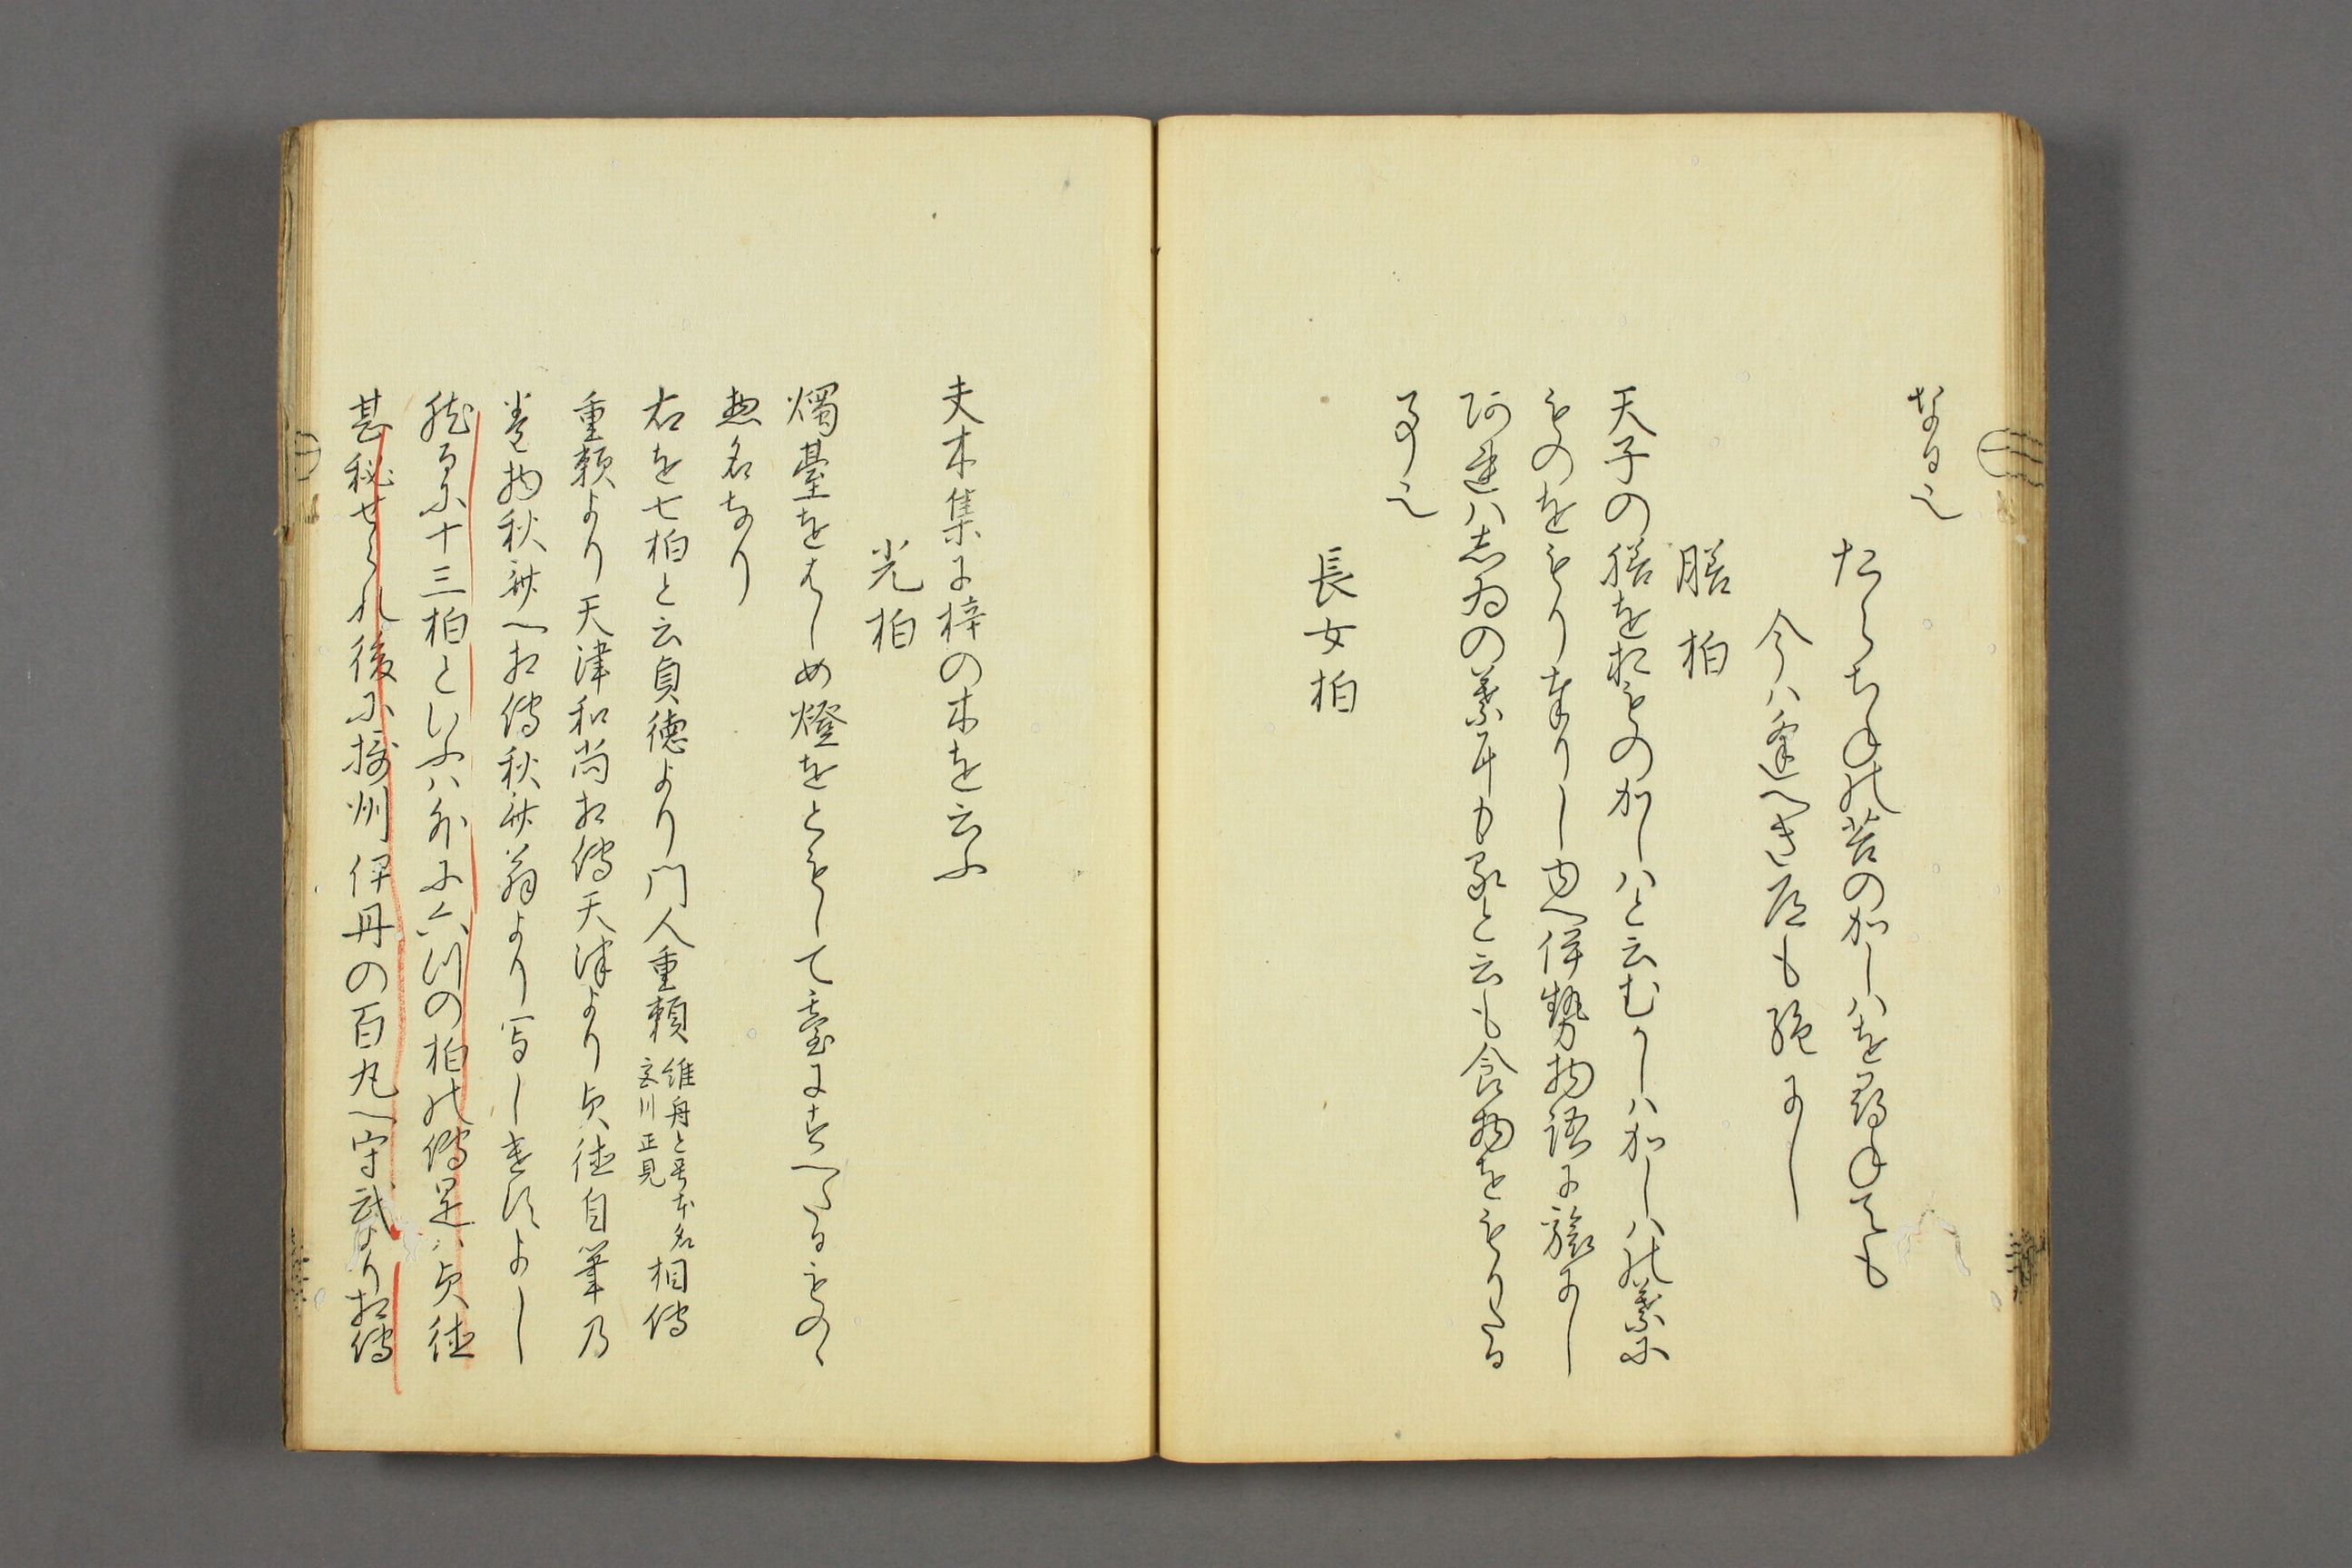 なる也
たらちねの苔のかしハを尋ねても
今ハ逢へき道も絶にし
膳柏
天子の膳をおものかしハと云むかしハかしハの葉に
ものをもり奉りし也伊勢物語に旅にし
阿連ハ志ゐの葉耳もると云も食物をもりたる
事也
長女柏
夫木集に梓の木を云ふ
光柏
燭臺をはしめ燈をともして臺にすへたるものゝ
惣名なり
右を七柏と云貞徳より門人重頼
維舟と号本名
正見
相傳
重頼より天津和尚相傳天津より貞徳自筆乃
巻物秋へ相傳秋翁より写しきたよし
然るに十三柏といふハ外に六川の柏の傳是ハ貞徳
甚秘せられ後に摂州伊丹の百丸へ守武より相傳